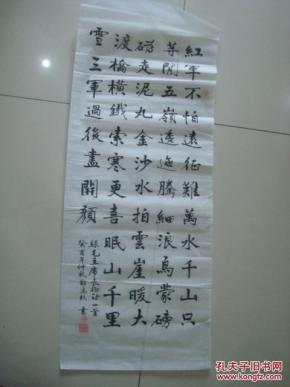 紅軍不怕遠征難萬水千山只
等閑五嶺逶迤騰細浪烏蒙磅
礴走泥丸金沙水拍雲崖暖大
渡橋橫鐵索寒更喜岷山千里
雪三軍過後盡開顏
錄毛主席長征詩一首
癸酉年仲秋 書
孔夫子旧书网